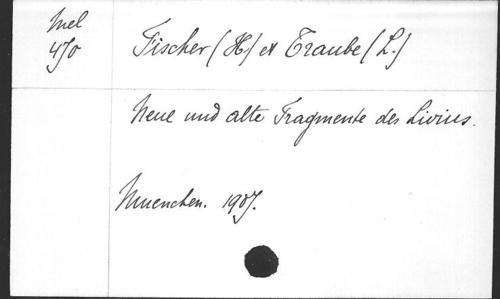 Mel
470
Fischer (H) et Traube (L.)
Neue und alte Fragmente des Livius.
Muenchen. 1907.